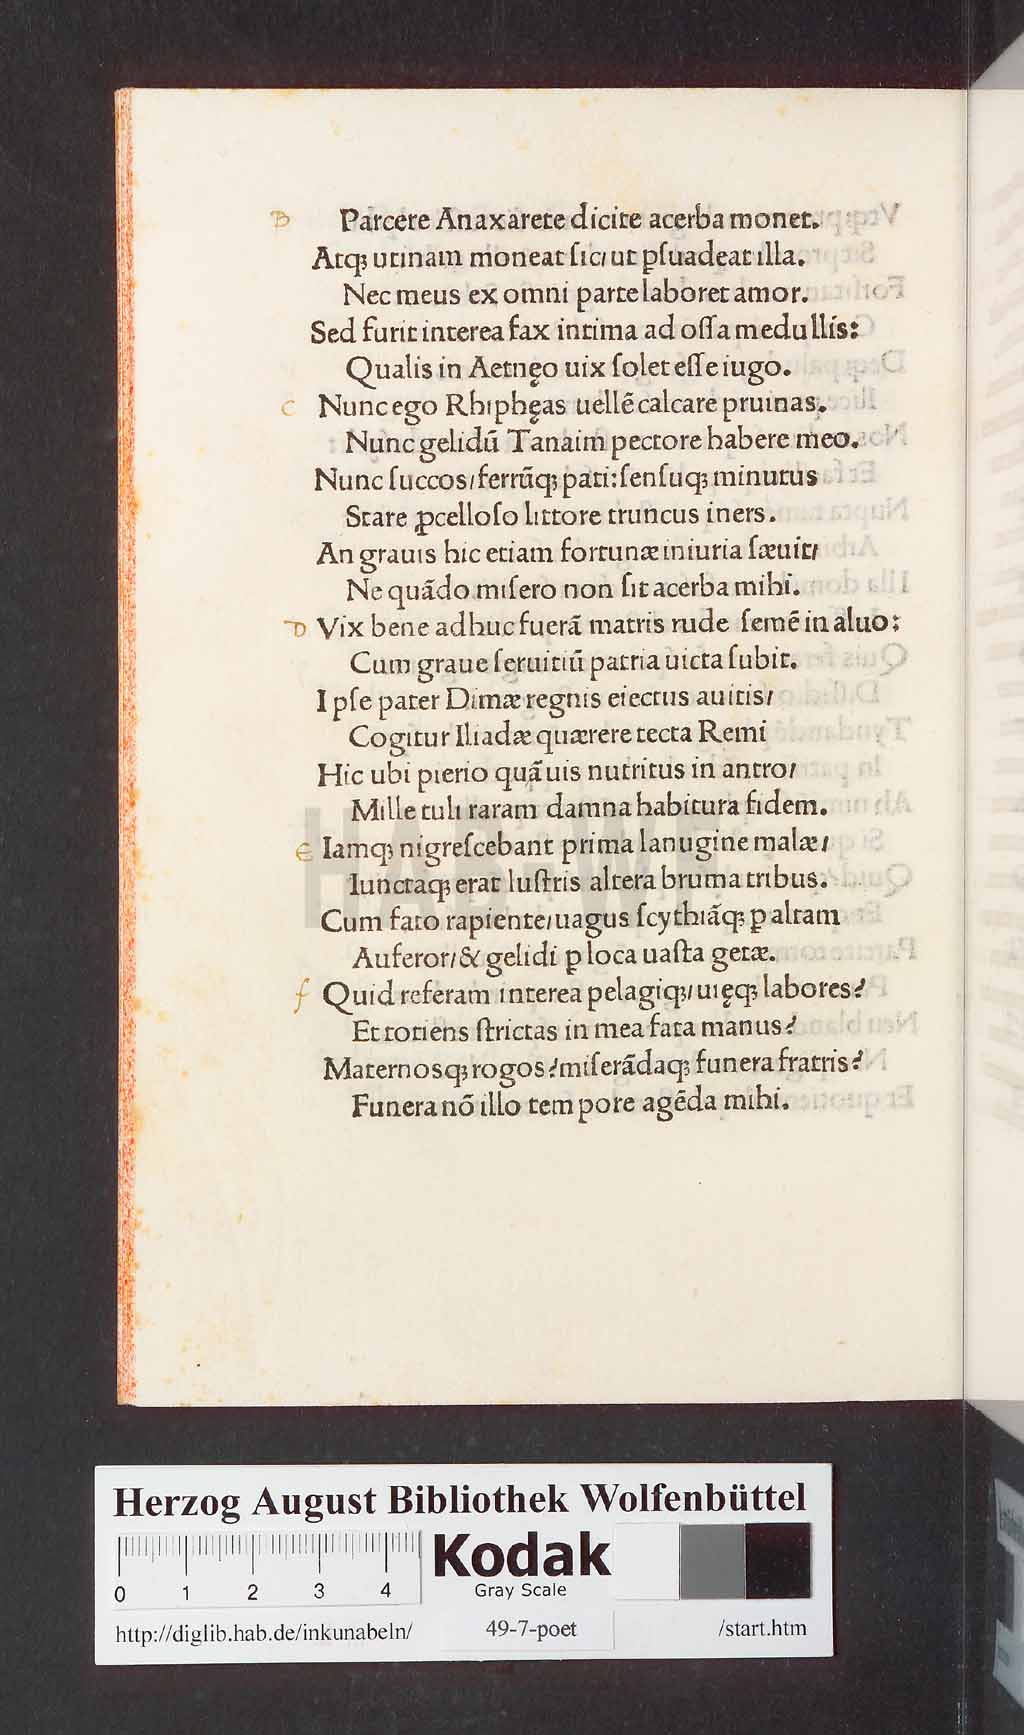 B Parcere Anaxarete dicite acerba monet.
Atqꝫ utinam moneat ſic/ ut ꝑſuadeat illa.
Nec meus ex omni parte laboret amor.
Sed furit interea fax intima ad oſſa medullis:
Qualis in Aetnęo uix ſolet eſſe iugo.
C Nunc ego Rhiphęas uellẽ calcare pruinas.
Nunc gelidũ Tanaim pectore habere meo.
Nunc ſuccos/ ferrũqꝫ pati: ſenſuqꝫ minutus
Stare ꝓcelloſo littore truncus iners.
An grauis hic etiam fortunæ iniuria ſæuit/
Ne quãdo miſero non ſit acerba mihi.
D Vix bene adhuc fuerã matris rude ſemẽ in aluo:
Cum graue ſeruitiũ patria uicta ſubit.
Ipſe pater Dimæ regnis eiectus auitis/
Cogitur Iliadæ quærere tecta Remi
Hic ubi pierio quãuis nutritus in antro/
Mille tuli raram damna habitura fidem.
e Iamqꝫ nigreſcebant prima lanugine malæ/
Iunctaqꝫ erat luſtris altera bruma tribus.
Cum fato rapiente/ uagus ſcythiãqꝫ ꝑ altam
Auferor/ & gelidi ꝑ loca uaſta getæ.
f Quid referam interea pelagiqꝫ/ uięqꝫ labores?
Et totiens ſtrictas in mea fata manus?
Maternosqꝫ rogos? miſerãdaqꝫ funera fratris?
Funera nõ illo tempore agẽda mihi.
HAB WF
Herzog August Bibliothek Wolfenbüttel
Kodak
0 1 2 3 4
Gray Scale
http://diglib.hab.de/inkunabeln/ 49-7-poet /start.htm